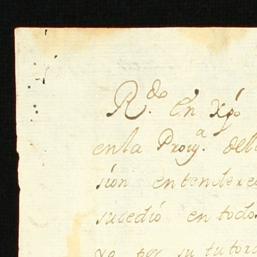 R.do en Xp̃o
en la Prov.a del
sión entendere
sucedió en todo
yo por su tutor